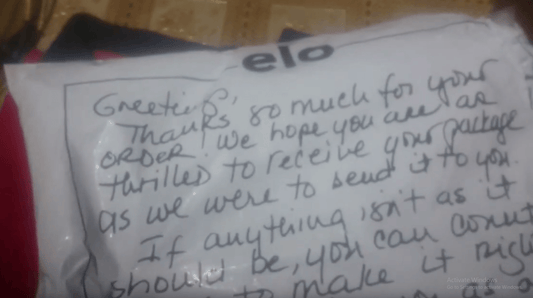 elo
Greetings,
Thanks so much for your
ORDER! We hope you are as
thrilled to receive your package
as we were to send it to you.
If anything isn't as it
should be, you can
to make it